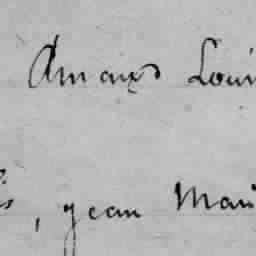 Amand Loui
s, jean Mari